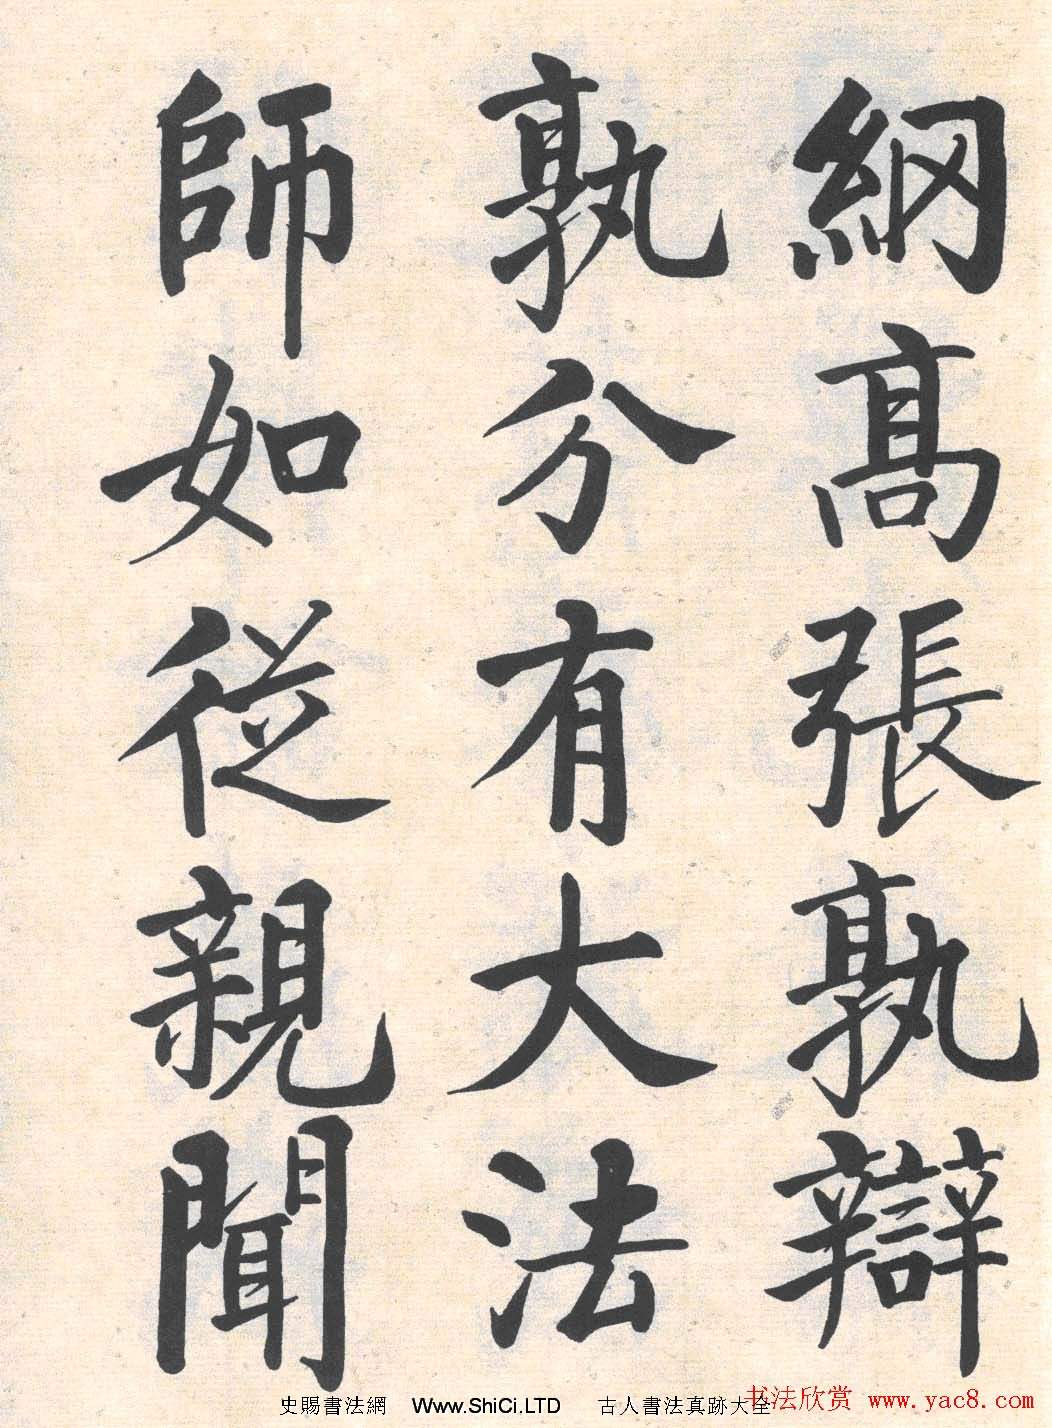 綱高張孰辯
孰分有大法
師如從親聞
史賜書法網 Www.ShiCi.LTD 古人書法真跡大全
书法欣赏 www.yac8.com